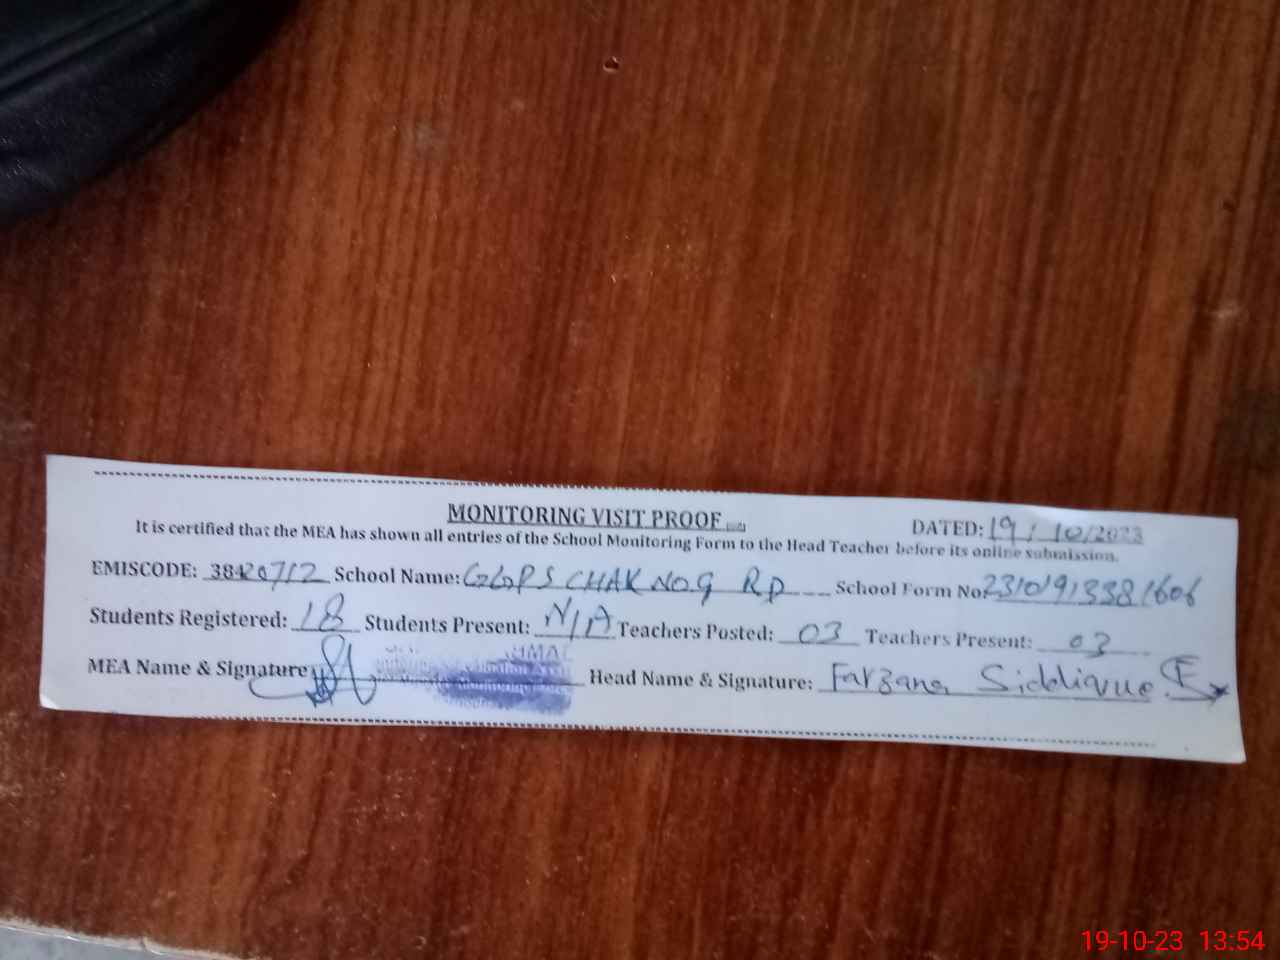 MONITORING VISIT PROOF
DATED: 19/10/2023
It is certified that the MEA has shown all entries of the School Monitoring Form to the Head Teacher before its online submission.
EMISCODE: 38420712 School Name: GGPS CHAK NO.9 RD School Form No: 23101913381606
Students Registered: 18 Students Present: N/A Teachers Posted: 03 Teachers Present: 03
MEA Name & Signature Head Name & Signature: Farzana Siddique
19-10-23 13:54